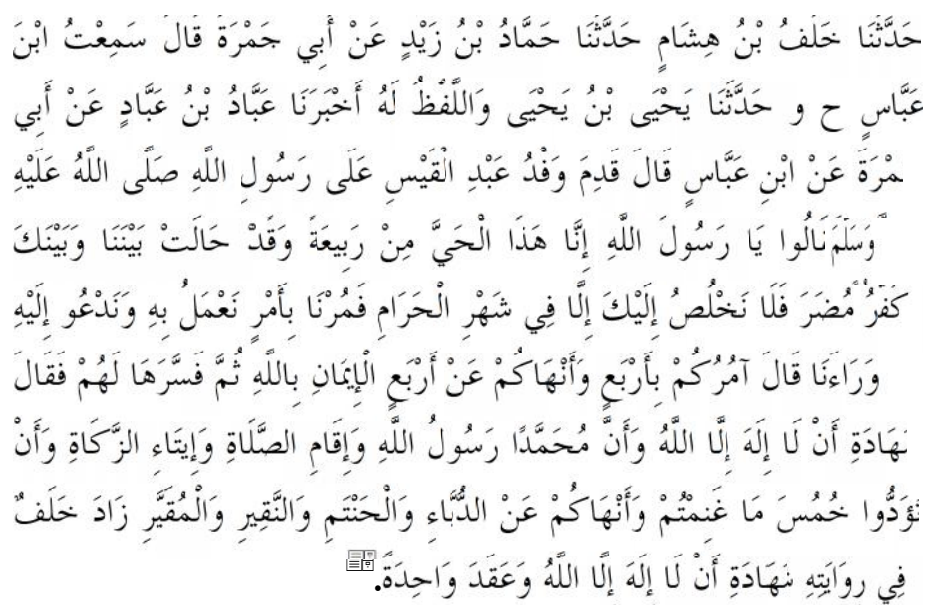 حَدَّثَنَا خَلَفُ بْنُ هِشَامٍ حَدَّثَنَا حَمَّادُ بْنُ زَيْدٍ عَنْ أَبِي جَمْرَةَ قَالَ سَمِعْتُ ابْنَ
عَبَّاسٍ ح و حَدَّثَنَا يَحْيَى بْنُ يَحْيَى وَاللَّفْظُ لَهُ أَخْبَرَنَا عَبَّادُ بْنُ عَبَّادٍ عَنْ أَبِي
مْرَةَ عَنْ ابْنِ عَبَّاسٍ قَالَ قَدِمَ وَفْدُ عَبْدِ الْقَيْسِ عَلَى رَسُولِ اللَّهِ صَلَّى اللَّهُ عَلَيْهِ
وَسَلَّمَ نَالُوا يَا رَسُولَ اللَّهِ إِنَّا هَذَا الْحَيَّ مِنْ رَبِيعَةَ وَقَدْ حَالَتْ بَيْنَنَا وَبَيْنَكَ
كُفَّرُ مُضَرَ فَلَا نَخْلُصُ إِلَيْكَ إِلَّا فِي شَهْرِ الْحَرَامِ فَمُرْنَا بِأَمْرٍ نَعْمَلُ بِهِ وَنَدْعُو إِلَيْهِ
وَرَاءَنَا قَالَ آمُرُكُمْ بِأَرْبَعٍ وَأَنْهَاكُمْ عَنْ أَرْبَعٍ الْإِيمَانِ بِاللَّهِ ثُمَّ فَسَّرَهَا لَهُمْ فَقَالَ
شَهَادَةِ أَنْ لَا إِلَهَ إِلَّا اللَّهُ وَأَنَّ مُحَمَّدًا رَسُولُ اللَّهِ وَإِقَامِ الصَّلَاةِ وَإِيتَاءِ الزَّكَاةِ وَأَنْ
تُؤَدُّوا خُمُسَ مَا غَنِمْتُمْ وَأَنْهَاكُمْ عَنْ الدُّبَّاءِ وَالْحَنْتَمِ وَالنَّقِيرِ وَالْمُقَيَّرِ زَادَ خَلَفٌ
فِي رِوَايَتِهِ شَهَادَةِ أَنْ لَا إِلَهَ إِلَّا اللَّهُ وَعَقَدَ وَاحِدَةً.